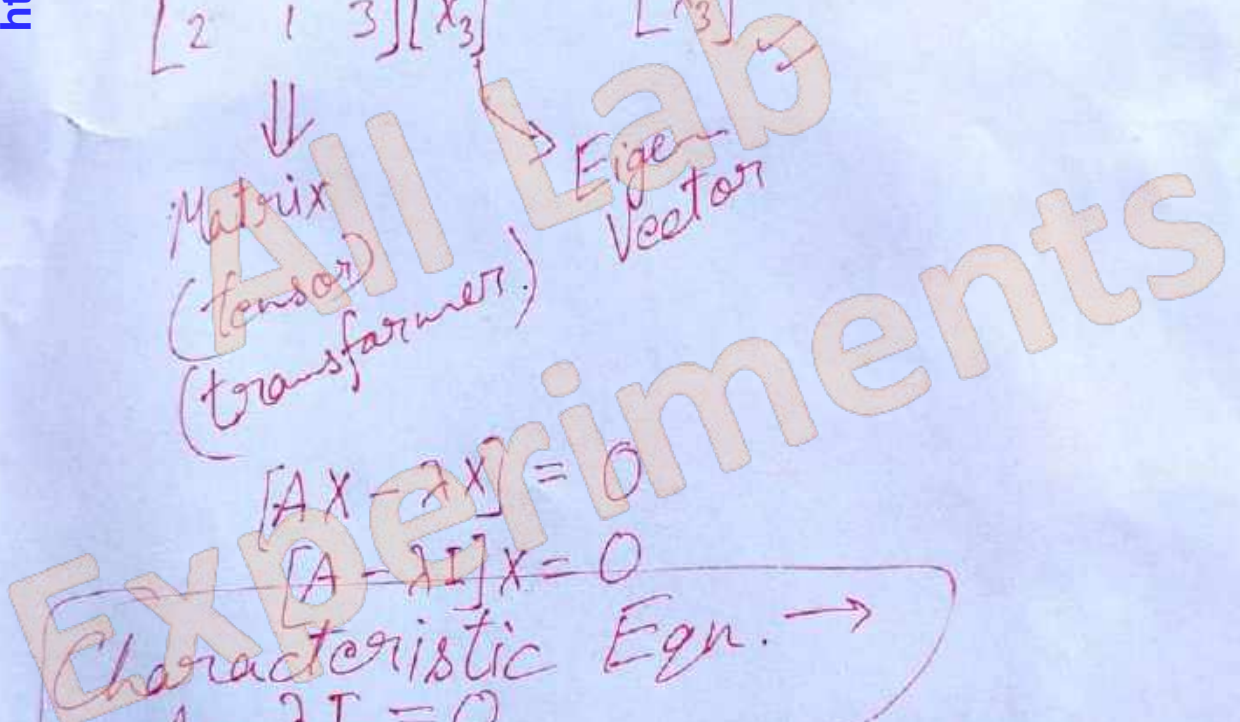 ht
[2 1 3][x₃] [x₃]
⇓
Matrix
(tensor)
(transfarmer.)
Eigen
Vector
[AX - λX] = 0
[A - λI]X = 0
Characteristic Eqn. →
λI = 0
All Lab
Experiments